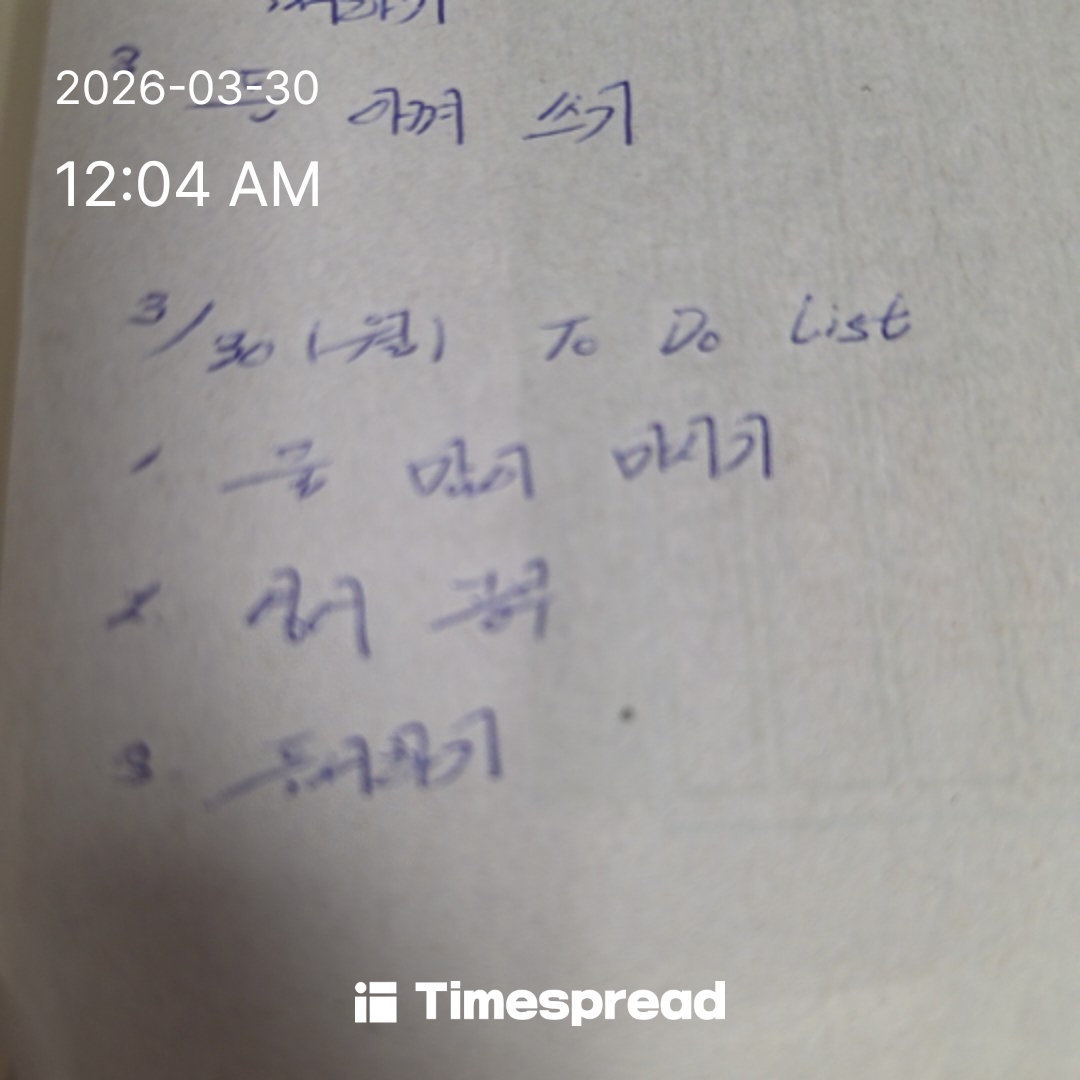 2026-03-30
3 돈 아껴 쓰기
12:04 AM
3/30 (월) To Do List
1 물 많이 마시기
2. 영어 공부
3.
Timespread